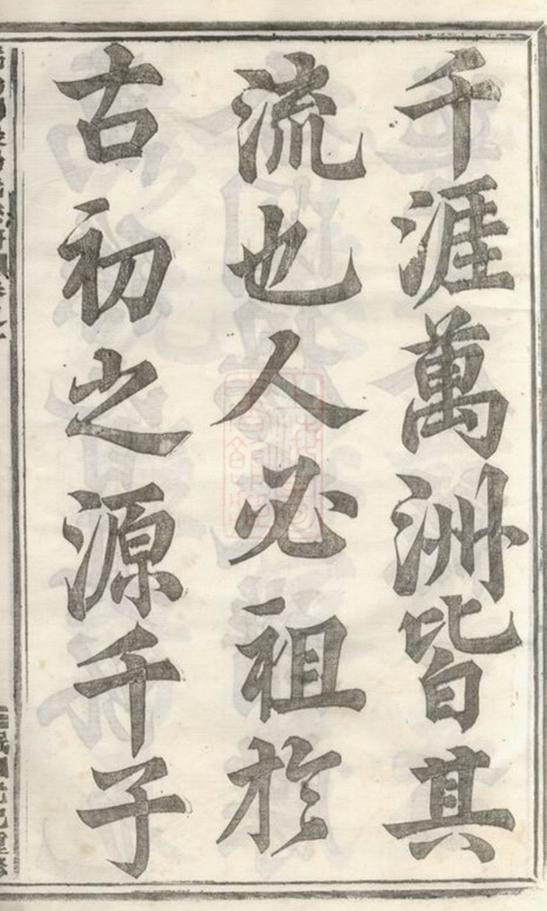 千涯萬洲皆其
流也人必祖於
古初之源千子